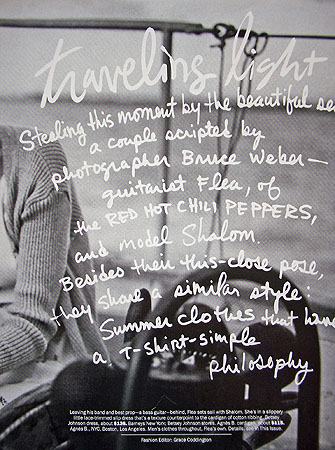 traveling light
Stealing this moment by the beautiful se
a couple scripted by
photographer Bruce Weber—
guitarist Flea, of
the RED HOT CHILI PEPPERS,
and model Shalom.
Besides their this-close pose,
they share a similar style:
Summer clothes that have
a T-shirt-simple
philosophy
Leaving his band and best prop—a bass guitar—behind, Flea sets sail with Shalom. She's in a slippery
little lace-trimmed slip dress that's a texture counterpoint to the cardigan of cotton ribbing. Betsey
Johnson dress, about $136. Barneys New York; Betsey Johnson stores. Agnès B. cardigan, about $115.
Agnès B., NYC, Boston, Los Angeles. Men's clothes throughout, Flea's own. Details, see In This Issue.
Fashion Editor: Grace Coddington